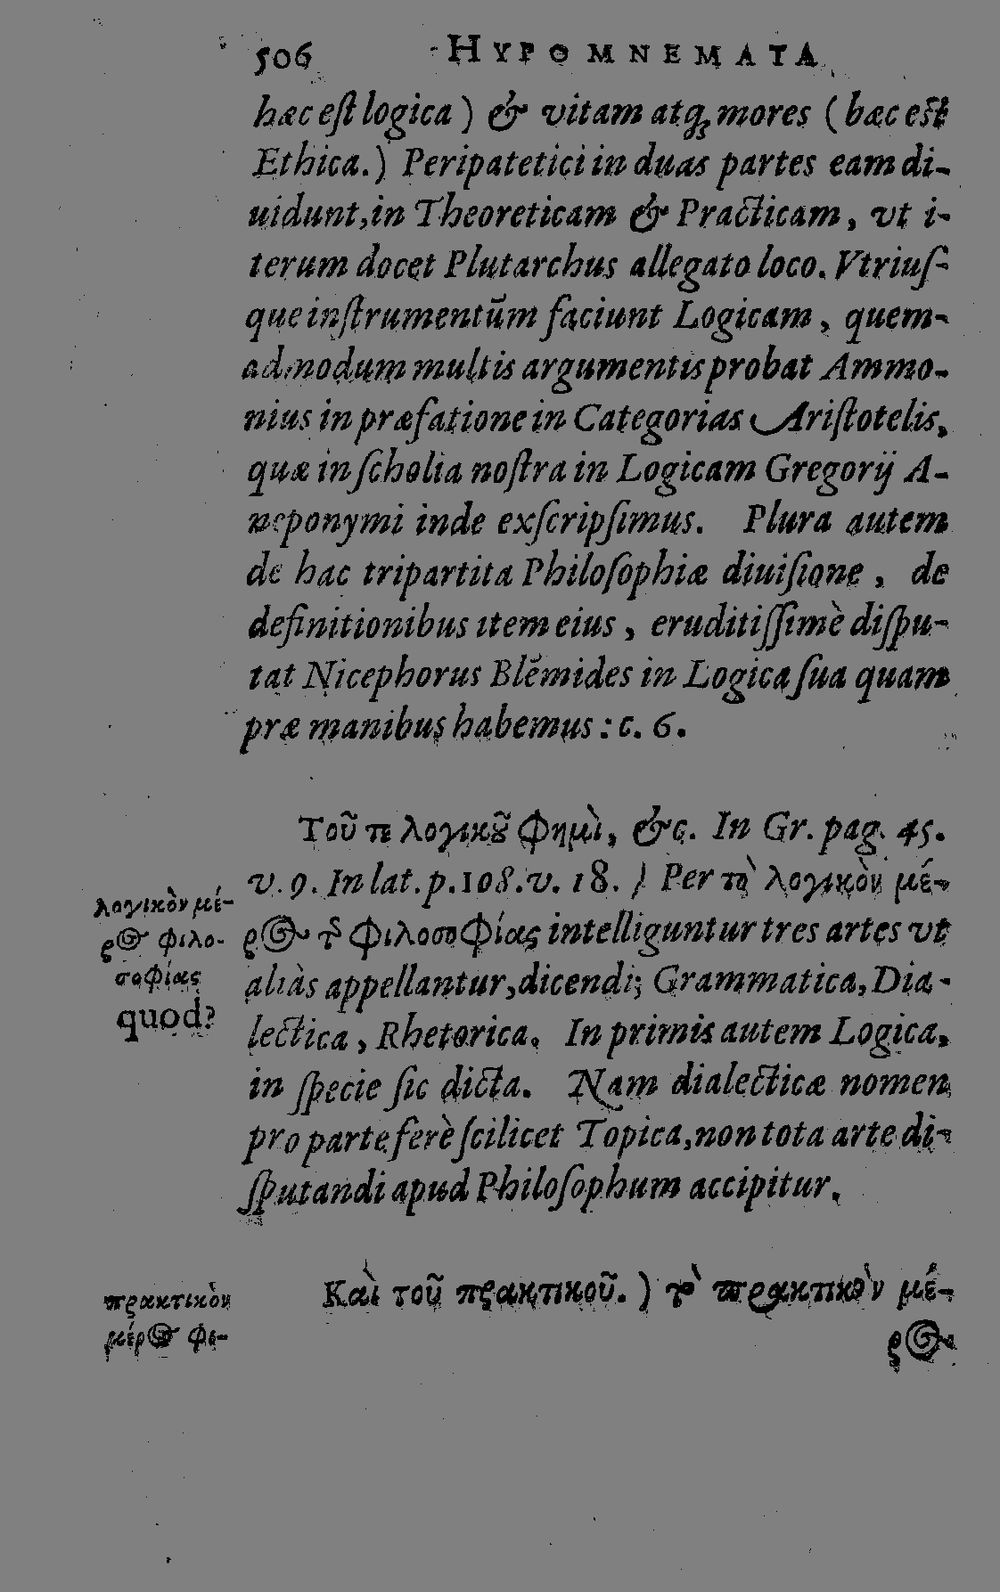 506 HYPOMNEMATA
hæc eſt logica ) & vitam atq; mores ( hæc eſt
Ethica.) Peripatetici in duas partes eam di-
uidunt, in Theoreticam & Practicam, vt i-
terum docet Plutarchus allegato loco. Vtriuſ-
que inſtrumentũm faciunt Logicam, quem-
admodum multis argumentis probat Ammo-
nius in præfatione in Categorias Ariſtotelis,
quæ in ſcholia noſtra in Logicam Gregorij A-
neponymi inde exſcripſimus. Plura autem
de hac tripartita Philoſophiæ diuiſione, de
definitionibus item eius, eruditiſſimè diſpu-
tat Nicephorus Blẽmides in Logica ſua quam
præ manibus habemus : c. 6.
Τοῦ τε λογικοῦ φημὶ, &c. In Gr. pag. 45.
v. 9. In lat. p. 108. v. 18. ) Per τὸ λογικὸν μέ-
ρος τῆς φιλοσοφίας intelliguntur tres artes vt
aliàs appellantur, dicendi; Grammatica, Dia-
lectica, Rhetorica. In primis autem Logica,
in ſpecie ſic dicta. Nam dialecticæ nomen
pro parte ferè ſcilicet Topica, non tota arte di-
ſputandi apud Philoſophum accipitur.
λογικὸν μέ-
ρος φιλο-
σοφίας
quod?
Καὶ τοῦ πρακτικοῦ. ) τὸ πρακτικὸν μέ-
ρος
πρακτικὸν
μέρος φι-